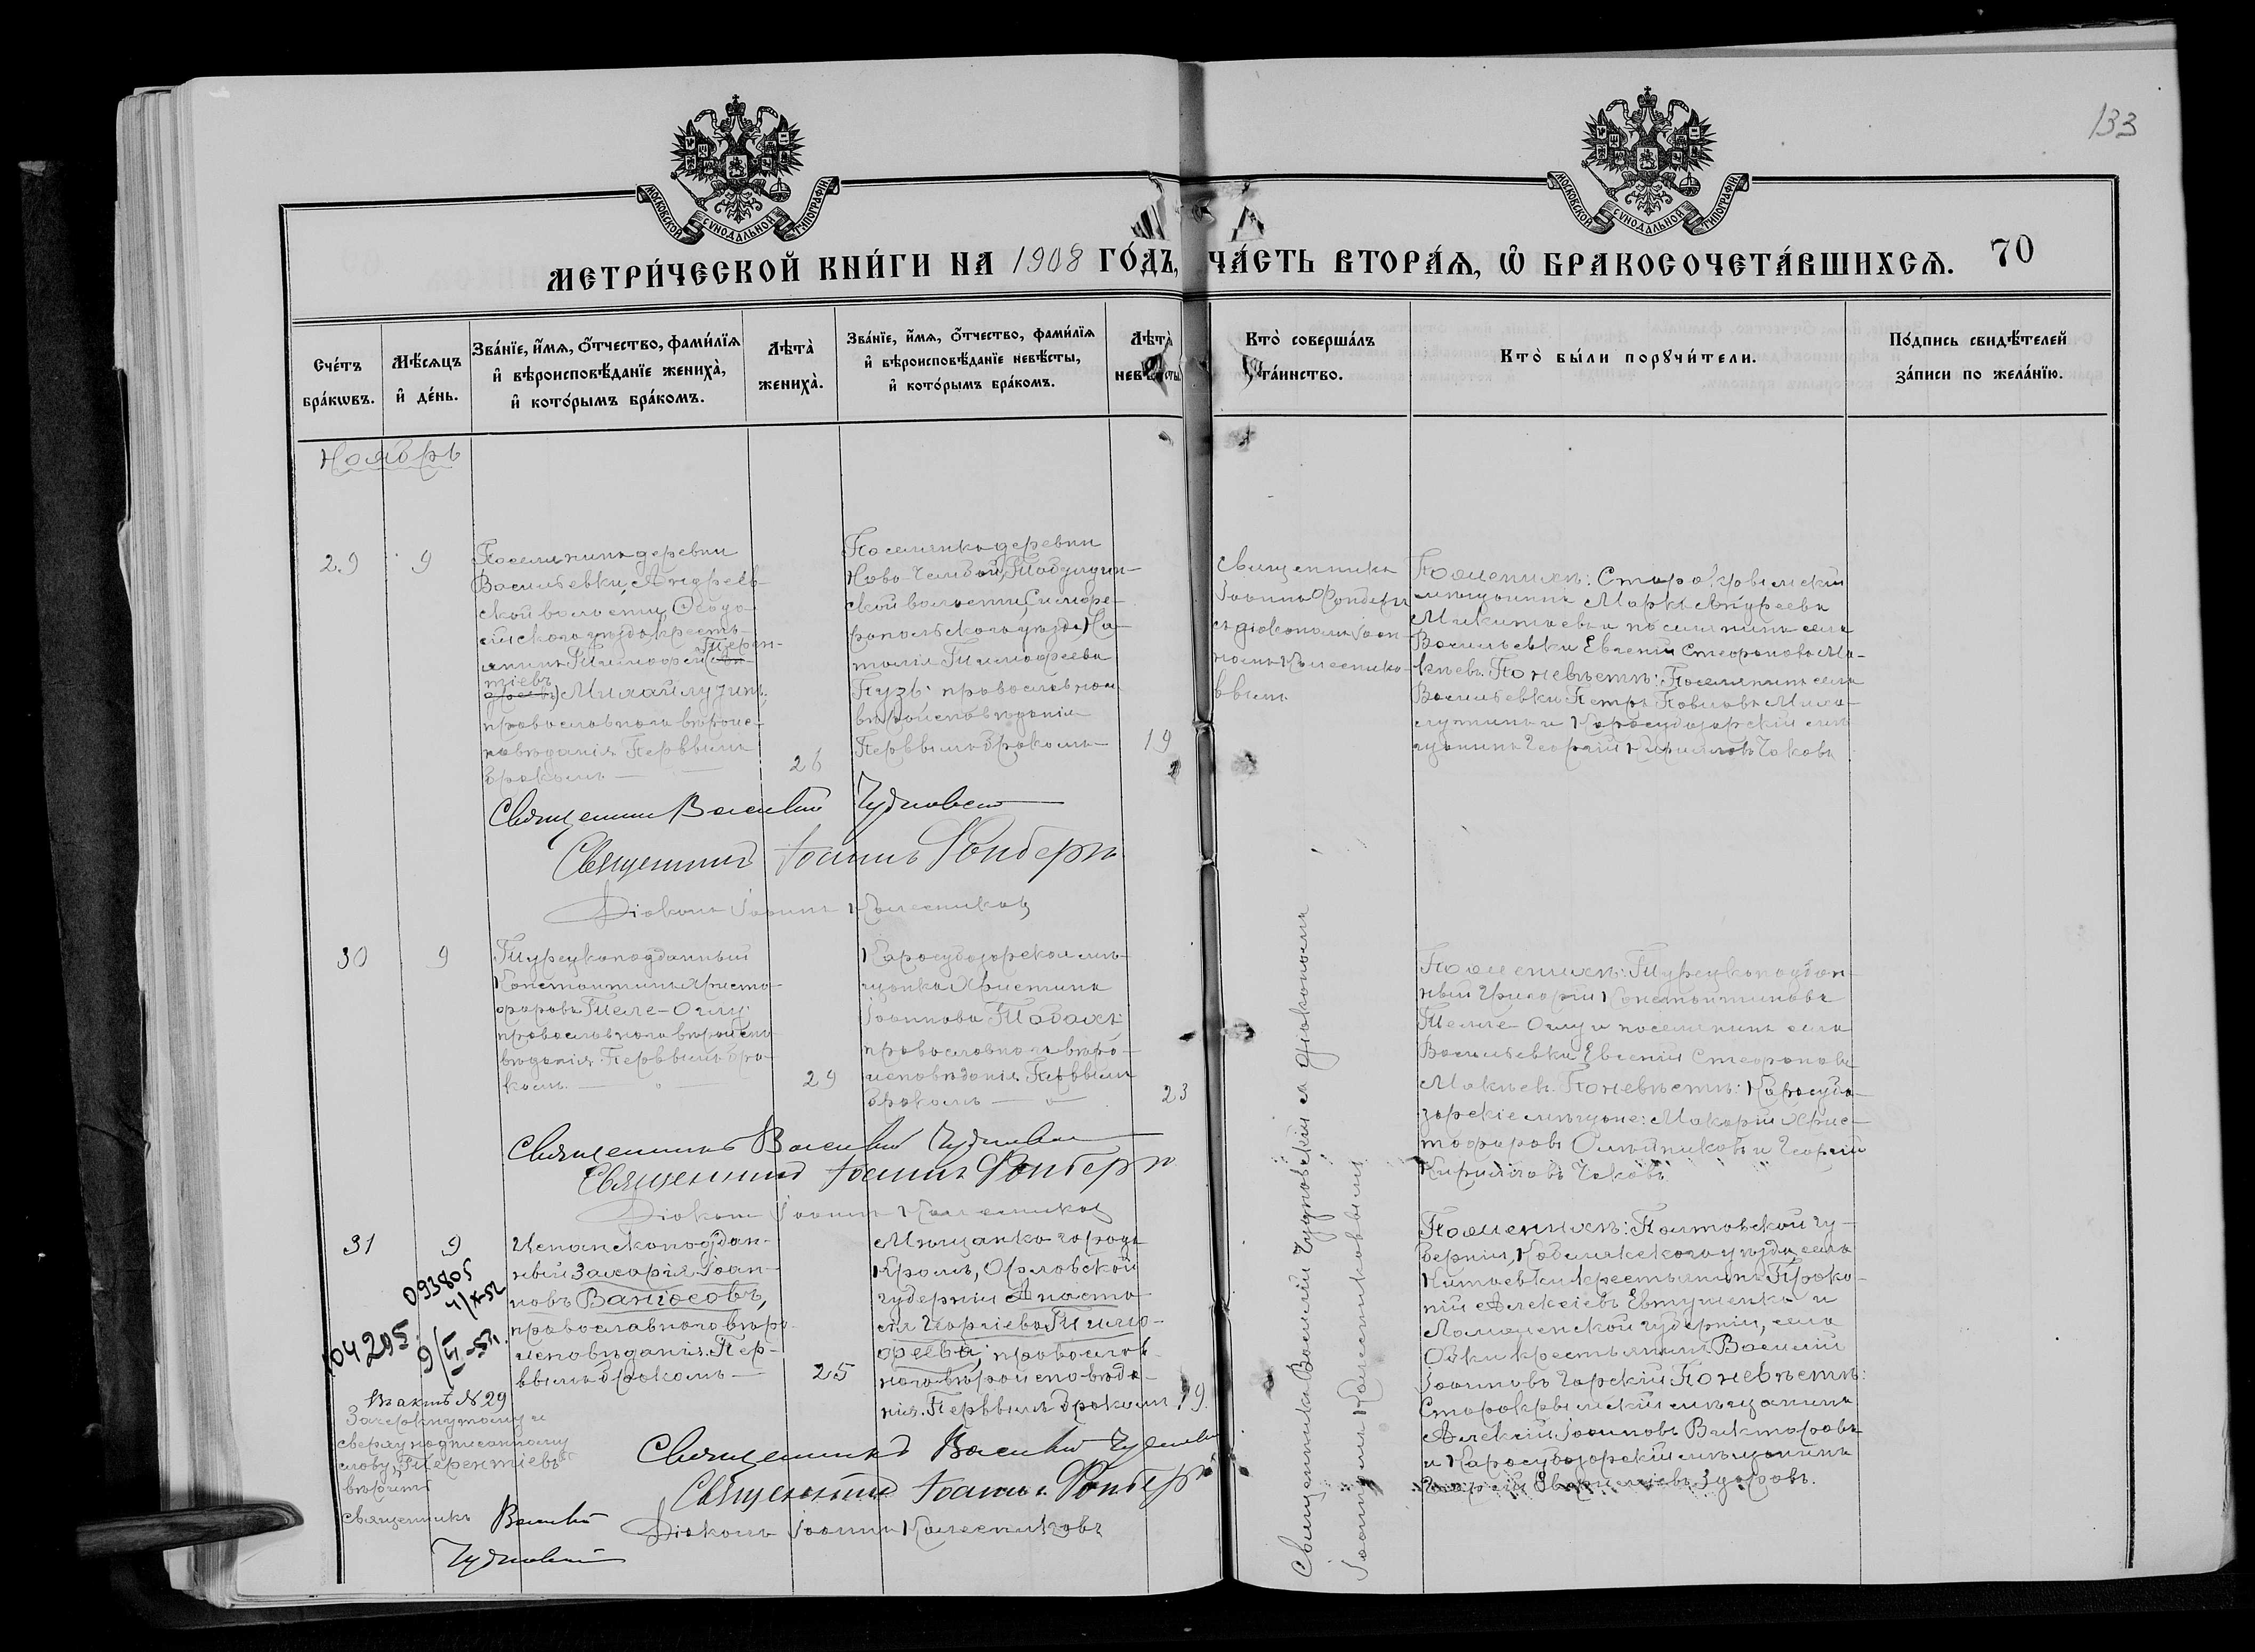 133
МОСКОВСКОЙ СУНОДАЛЬНОЙ ТИПОГРАФІИ.
МОСКОВСКОЙ СУНОДАЛЬНОЙ ТИПОГРАФІИ.
МЕТРИ́ЧЕСКОЙ КНИ́ГИ НА 1908 ГО́ДЪ, ЧА́СТЬ ВТОРА́Ѧ, Ѡ БРАКОСОЧЕТА́ВШИХСѦ. 70
Сче́тъ
бра́кѡвъ.
Мѣ́сѧцъ
и҆ де́нь.
Зва́нїе, и҆́мѧ, ѻ҆́тчество, фами́лїѧ
и҆ вѣроисповѣ́данїе женихà,
и҆ кото́рымъ бра́комъ.
Лѣтà
женихà.
Зва́нїе, и҆́мѧ, ѻ҆́тчество, фами́лїѧ
и҆ вѣроисповѣ́данїе невѣ́сты,
и҆ кото́рымъ бра́комъ.
Лѣтà
невѣ́сты.
Кто̀ соверша́лъ
та́инство.
Кто̀ бы́ли порꙋчи́тели.
По́дпись свидѣ́телей
за́писи по жела́нїю.
Ноябрь
29
9
Поселянинъ деревни
Васильевки, Андреев-
ской волости, Ѳеодо-
сійскаго уѣзда крестъ-
янинъ Тимоѳей Терен-
тіевъ Михайлузинъ,
православнаго вѣроис-
повѣданія. Первымъ
бракомъ
26
Поселянка деревни
Ново-
ской волости, Симфе-
ропольскаго уѣзда На-
талія Тимоѳеева
Пузь православнаго
вѣроисповѣданія
Первымъ бракомъ
19
Священникъ
Іоаннъ Фонберъ
съ діакономъ Іоан-
номъ Колеснико-
вымъ
По женихѣ: Старокрымскій
мѣщанинъ Маркъ Андреевъ
и поселянинъ села
Васильевки Евгеній Стефановъ Ма-
кѣевъ. По невѣстѣ: Поселянинъ села
Васильевки Петръ Павловъ Миха-
и Карасубазарскій мѣ-
щанинъ Георгій Кирилловъ Чаковъ
Священникъ Василій Чудновскій
Священникъ Іоаннъ Фонберъ
Діаконъ Іоаннъ Колесниковъ
30
9
Турецкоподданный
Константинъ Христо-
форовъ Теле-Оглу
православнаго вѣроиспо-
вѣданія. Первымъ бра-
комъ
29
Карасубазарская мѣ-
щанка Христина
Іоаннова Табахъ
православнаго вѣро-
исповѣданія. Первымъ
бракомъ
23
По женихѣ: Турецкоподдан-
ный Григорій Константиновъ
Теле-Оглу и поселянинъ села
Васильевки Евгеній Стефановъ
Макѣевъ. По невѣстѣ: Карасуба-
зарскіе мѣщане: Макарій Хрис-
тофоровъ Олейниковъ и Георгій
Кирилловъ Чаковъ
Священникъ Василій Чудновскій
Священникъ Іоаннъ Фонберъ
Діаконъ Іоаннъ Колесниковъ
31
9
Испанскоподдан-
ный Захарія Іоан-
новъ Вангосовъ,
православнаго вѣро-
исповѣданія. Пер-
вымъ бракомъ
25
Мѣщанка города
Кромъ, Орловской
губерніи Анаста-
сія Георгіева Тимо-
феева; православ-
наго вѣроисповѣда-
нія. Первымъ бракомъ
19.
Священникъ Василій Чудновскій съ діакономъ
Іоанномъ Колесниковымъ
По женихѣ: Полтавской гу-
берніи, Кобелякскаго уѣзда, села
Китаевки крестьянинъ Проко-
пій Алексіевъ Евтушенко и
губерніи, села
крестьянинъ Василій
Іоанновъ Чарскій По невѣстѣ:
Старокрымскій мѣщанинъ
Алексій Іоанновъ Викторовъ
и Карасубазарскій мѣщанинъ
Георгій Здоровъ.
093805
104295
Въ актѣ № 29
Зачеркнутому и
сверху надписанному
слову „Терентіевъ“
вѣрить
Священникъ Василій
Чудновскій
Священникъ Василій Чудновскій
Священникъ Іоаннъ Фонберъ
Діаконъ Іоаннъ Колесниковъ